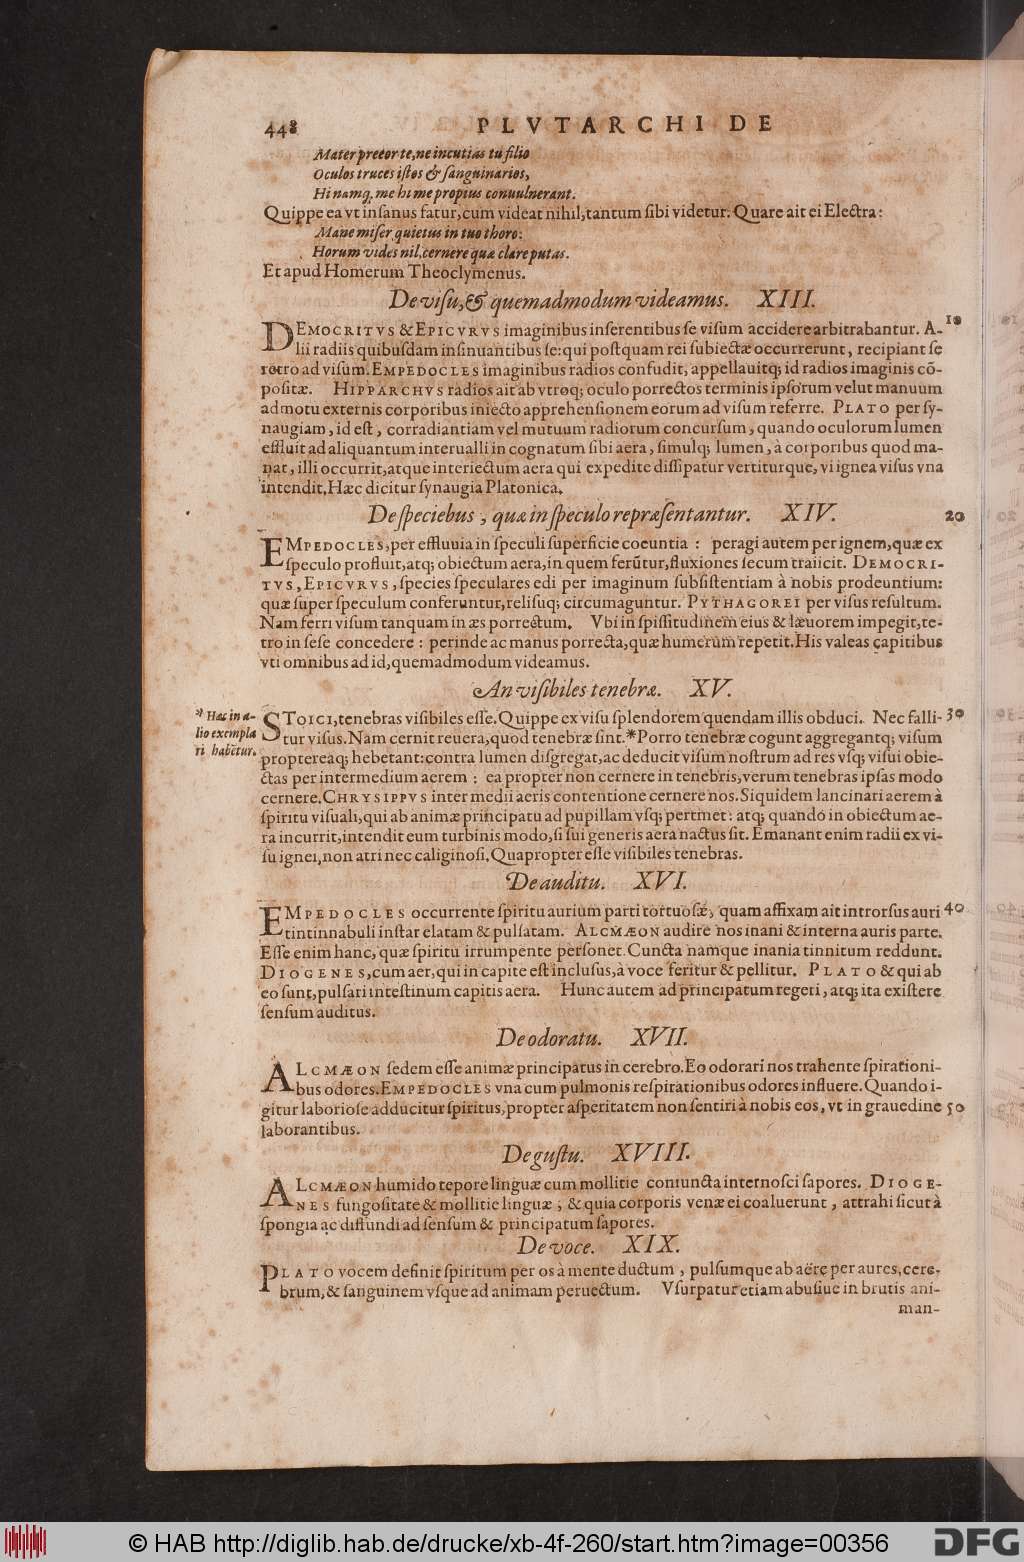 448 PLVTARCHI DE
Mater precor te, ne incutias tu filio
Oculos truces istos & sanguinarios,
Hi namq; me hi me propius conuulnerant.
Quippe ea vt insanus fatur, cum videat nihil, tantum sibi videtur. Quare ait ei Electra:
Mane miser quietus in tuo thoro:
Horum vides nil, cernere quæ clare putas.
Et apud Homerum Theoclymenus.
De visu, & quemadmodum videamus. XIII.
DEMOCRITVS & EPICVRVS imaginibus inserentibus se visum accidere arbitrabantur. A- 10
lii radiis quibusdam insinuantibus se: qui postquam rei subiectæ occurrerunt, recipiant se
retro ad visum. EMPEDOCLES imaginibus radios confudit, appellauitq; id radios imaginis cõ-
positæ. HIPPARCHVS radios ait ab vtroq; oculo porrectos terminis ipsorum velut manuum
admotu externis corporibus iniecto apprehensionem eorum ad visum referre. PLATO per sy-
naugiam, id est, corradiantiam vel mutuum radiorum concursum, quando oculorum lumen
effluit ad aliquantum interualli in cognatum sibi aera, simulq; lumen, à corporibus quod ma-
nat, illi occurrit, atque interiectum aera qui expedite dissipatur vertiturque, vi ignea visus vna
intendit. Hæc dicitur synaugia Platonica.
De speciebus, quæ in speculo repræsentantur. XIV. 20
EMPEDOCLES, per effluuia in speculi superficie coeuntia: peragi autem per ignem, quæ ex
speculo profluit, atq; obiectum aera, in quem ferũtur, fluxiones secum traiicit. DEMOCRI-
TVS, EPICVRVS, species speculares edi per imaginum subsistentiam à nobis prodeuntium:
quæ super speculum conferuntur, relisuq; circumaguntur. PYTHAGOREI per visus resultum.
Nam ferri visum tanquam in æs porrectum. Vbi in spissitudinem eius & læuorem impegit, re-
tro in sese concedere: perinde ac manus porrecta, quæ humerum repetit. His valeas capitibus
vti omnibus ad id, quemadmodum videamus.
An visibiles tenebræ. XV.
* Hæc in a-
lio exempla
ri habẽtur.
STOICI, tenebras visibiles esse. Quippe ex visu splendorem quendam illis obduci. Nec falli- 30
tur visus. Nam cernit reuera, quod tenebræ sint. * Porro tenebræ cogunt aggregantq; visum
proptereaq; hebetant: contra lumen disgregat, ac deducit visum nostrum ad res vsq; visui obie-
ctas per intermedium aerem: ea propter non cernere in tenebris, verum tenebras ipsas modo
cernere. CHRYSIPPVS inter medii aeris contentione cernere nos. Siquidem lancinari aerem à
spiritu visuali, qui ab animæ principatu ad pupillam vsq; pertinet: atq; quando in obiectum ae-
ra incurrit, intendit eum turbinis modo, si sui generis aera nactus sit. Emanant enim radii ex vi-
su ignei, non atri nec caliginosi. Quapropter esse visibiles tenebras.
De auditu. XVI.
EMPEDOCLES occurrente spiritu aurium parti tortuosæ, quam affixam ait introrsus auri 40
tintinnabuli instar elatam & pulsatam. ALCMÆON audire nos inani & interna auris parte.
Esse enim hanc, quæ spiritu irrumpente personet. Cuncta namque inania tinnitum reddunt.
DIOGENES, cum aer, qui in capite est inclusus, à voce feritur & pellitur. PLATO & qui ab
eo sunt, pulsari intestinum capitis aera. Hunc autem ad principatum regeri, atq; ita existere
sensum auditus.
De odoratu. XVII.
ALCMÆON sedem esse animæ principatus in cerebro. Eo odorari nos trahente spirationi-
bus odores. EMPEDOCLES vna cum pulmonis respirationibus odores influere. Quando i-
gitur laboriose adducitur spiritus, propter asperitatem non sentiri à nobis eos, vt in grauedine 50
laborantibus.
De gustu. XVIII.
ALCMÆON humido tepore linguæ cum mollitie coniuncta internosci sapores. DIOGE-
NES fungositate & mollitie linguæ, & quia corporis venæ ei coaluerunt, attrahi sicut à
spongia ac diffundi ad sensum & principatum sapores.
De voce. XIX.
PLATO vocem definit spiritum per os à mente ductum, pulsumque ab aëre per aures, cere-
brum, & sanguinem vsque ad animam peruectum. Vsurpatur etiam abusiue in brutis ani-
man-
© HAB http://diglib.hab.de/drucke/xb-4f-260/start.htm?image=00356
DFG